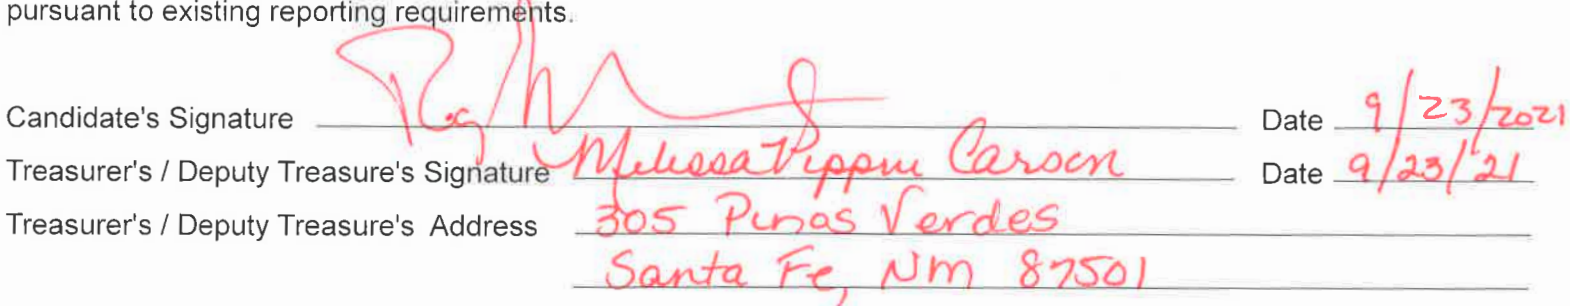 pursuant to existing reporting requirements.
Candidate's Signature Date 9/23/2021
Treasurer's / Deputy Treasure's Signature Melissa Pippin Carson Date 9/23/'21
Treasurer's / Deputy Treasure's Address 305 Pinos Verdes
Santa Fe, NM 87501